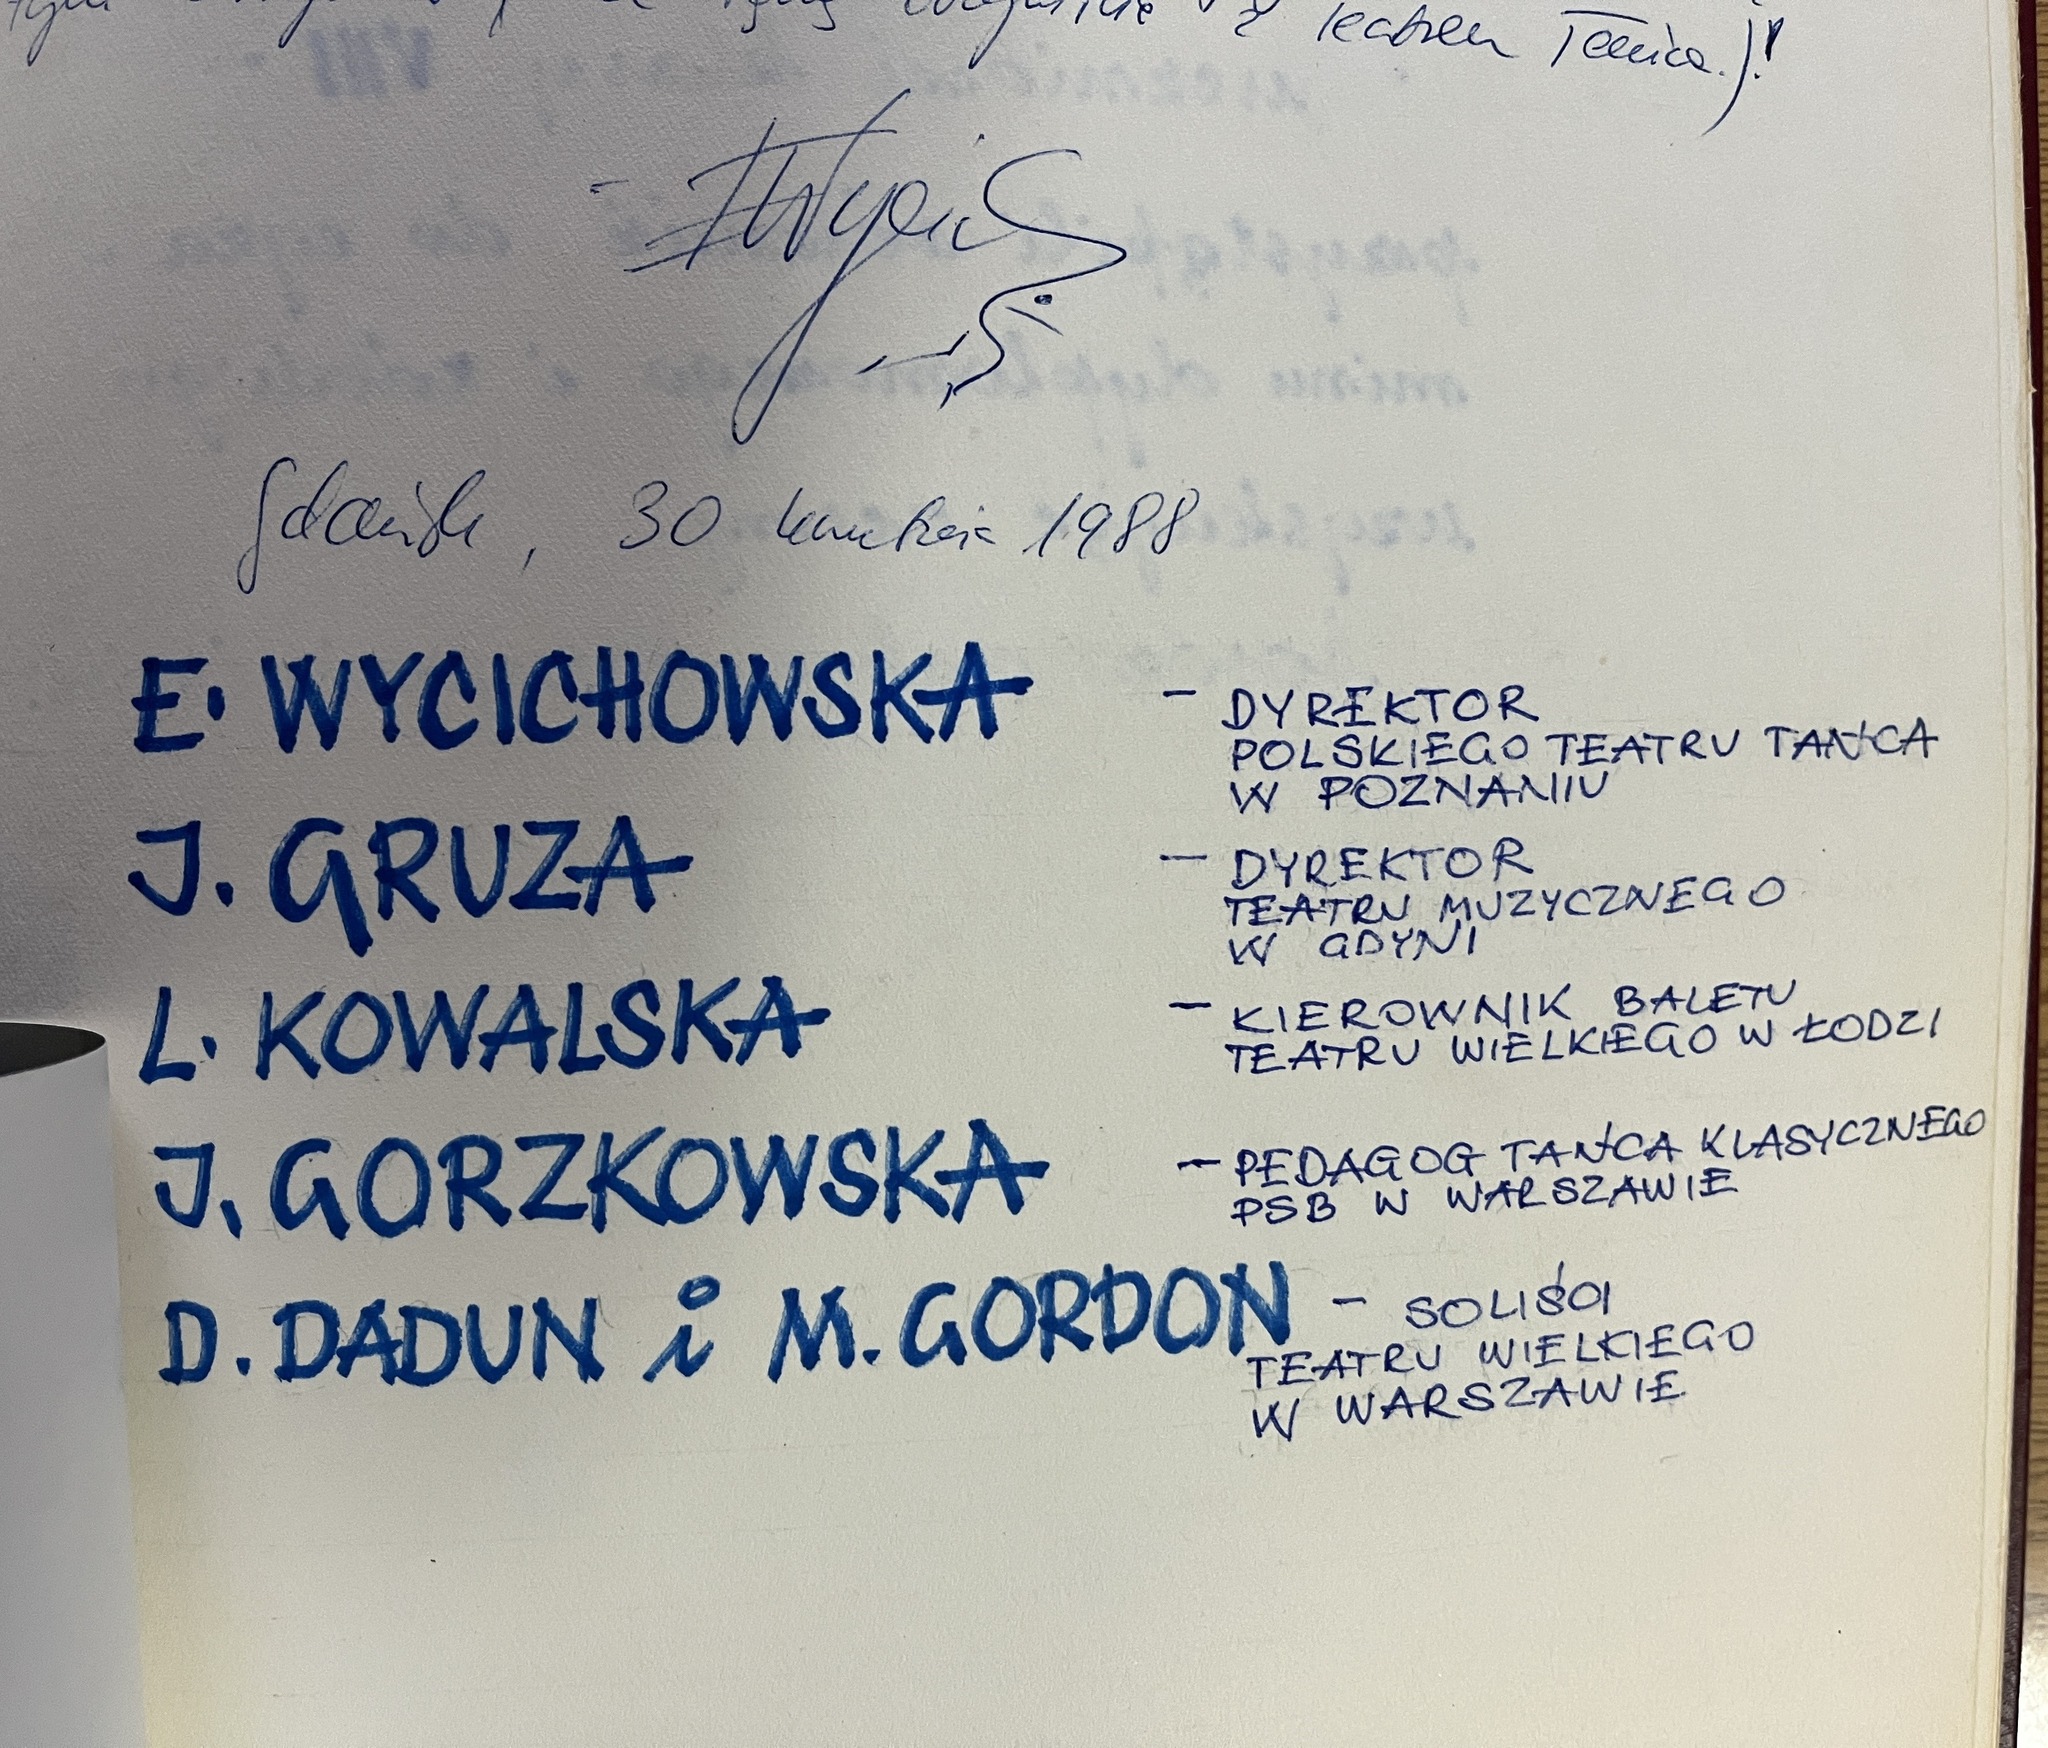 z teatrem Tańca.)!
Gdańsk, 30 kwietnia 1988
E. WYCICHOWSKA - DYREKTOR
POLSKIEGO TEATRU TAŃCA
W POZNANIU
J. GRUZA - DYREKTOR
TEATRU MUZYCZNEGO
W GDYNI
L. KOWALSKA - KIEROWNIK BALETU
TEATRU WIELKIEGO W ŁODZI
J. GORZKOWSKA - PEDAGOG TAŃCA KLASYCZNEGO
PSB W WARSZAWIE
D. DADUN i M. GORDON - SOLIŚCI
TEATRU WIELKIEGO
W WARSZAWIE